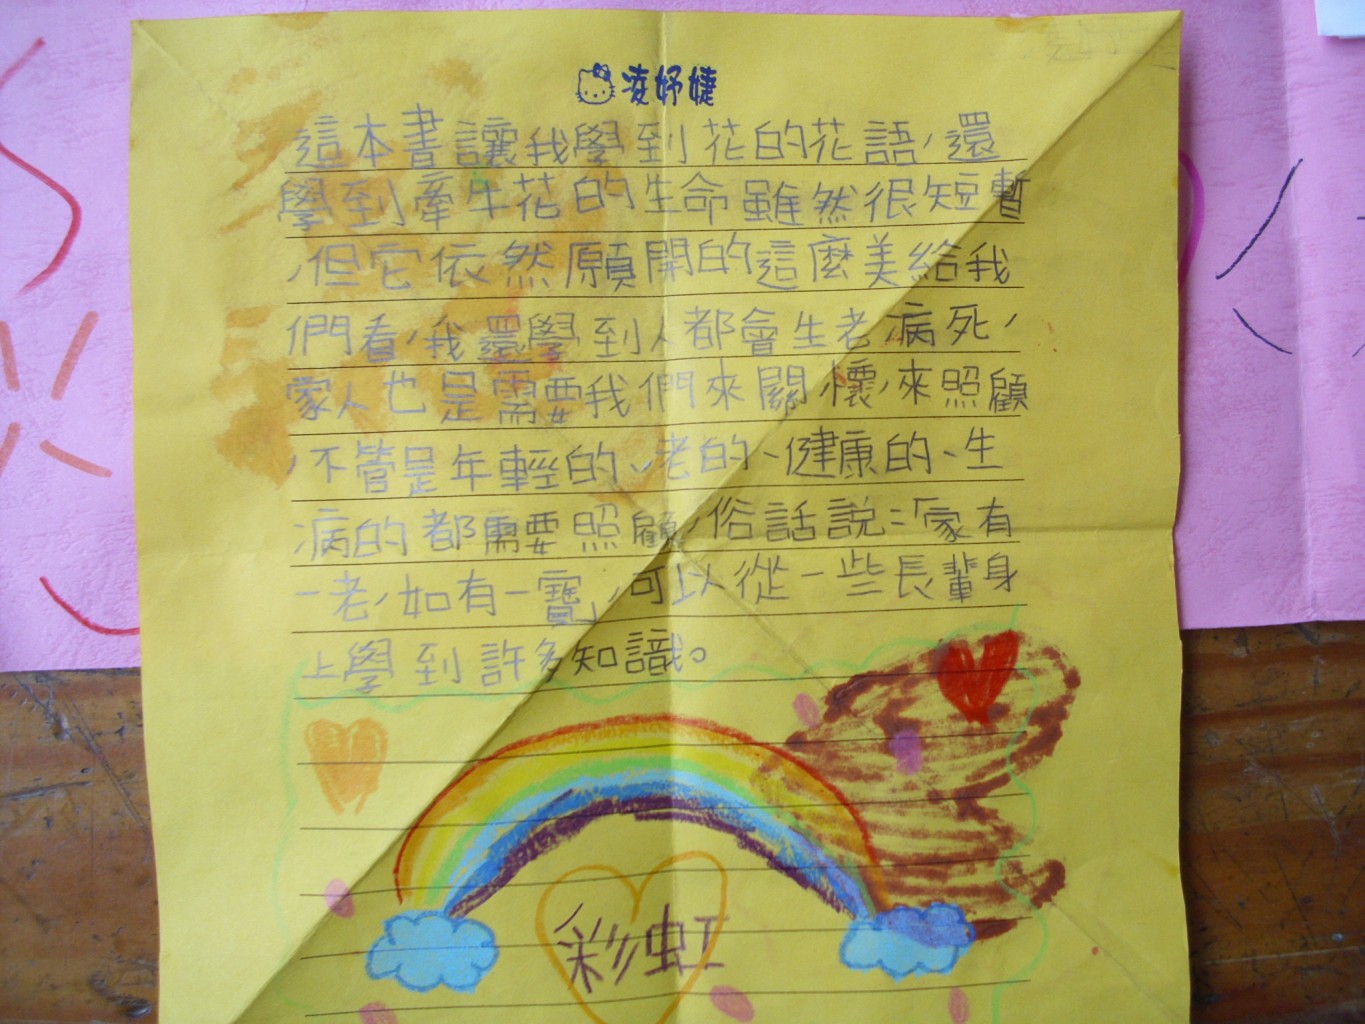 凌妤婕
這本書讓我學到花的花語，還
學到牽牛花的生命雖然很短暫
，但它依然願開的這麼美給我
們看，我還學到人都會生老病死，
家人也是需要我們來關懷，來照顧
，不管是年輕的、老的、健康的、生
病的都需要照顧，俗話說：「家有
一老，如有一寶」，可以從一些長輩身
上學到許多知識。
彩虹